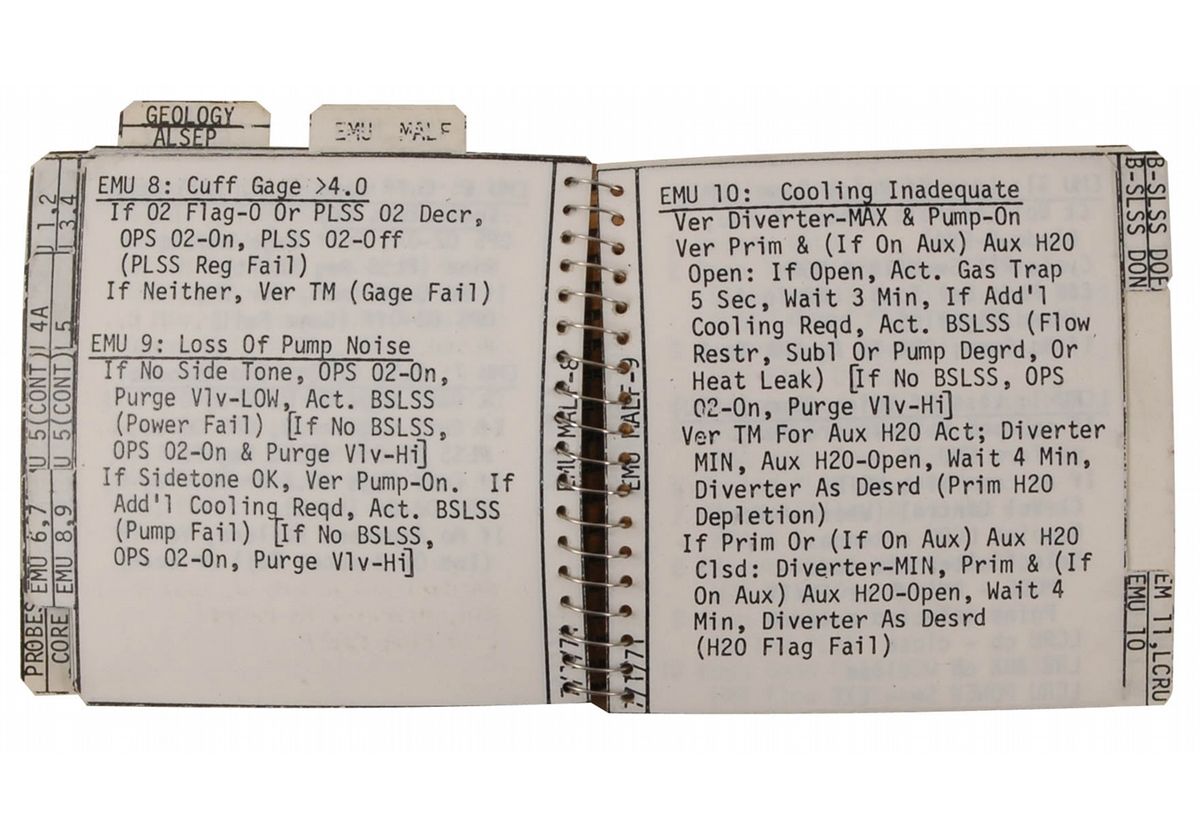 GEOLOGY
ALSEP
EMU MALF
EMU 8: Cuff Gage >4.0
If O2 Flag-O Or PLSS O2 Decr,
OPS O2-On, PLSS O2-Off
(PLSS Reg Fail)
If Neither, Ver TM (Gage Fail)
EMU 9: Loss Of Pump Noise
If No Side Tone, OPS O2-On,
Purge Vlv-LOW, Act. BSLSS
(Power Fail) [If No BSLSS,
OPS O2-On & Purge Vlv-Hi]
If Sidetone OK, Ver Pump-On. If
Add'l Cooling Reqd, Act. BSLSS
(Pump Fail) [If No BSLSS,
OPS O2-On, Purge Vlv-Hi]
EMU MALF-8
PROBES
CORE
EMU 6,7
EMU 8,9
U 5(CONT)
U 5(CONT)
4A
5
1,2
3,4
EMU 10: Cooling Inadequate
Ver Diverter-MAX & Pump-On
Ver Prim & (If On Aux) Aux H2O
Open: If Open, Act. Gas Trap
5 Sec, Wait 3 Min, If Add'l
Cooling Reqd, Act. BSLSS (Flow
Restr, Subl Or Pump Degrd, Or
Heat Leak) [If No BSLSS, OPS
O2-On, Purge Vlv-Hi]
Ver TM For Aux H2O Act; Diverter
MIN, Aux H2O-Open, Wait 4 Min,
Diverter As Desrd (Prim H2O
Depletion)
If Prim Or (If On Aux) Aux H2O
Clsd: Diverter-MIN, Prim & (If
On Aux) Aux H2O-Open, Wait 4
Min, Diverter As Desrd
(H2O Flag Fail)
EMU MALF-9
B-SLSS DOF
B-SLSS DON
EM 11,LCRU
EMU 10